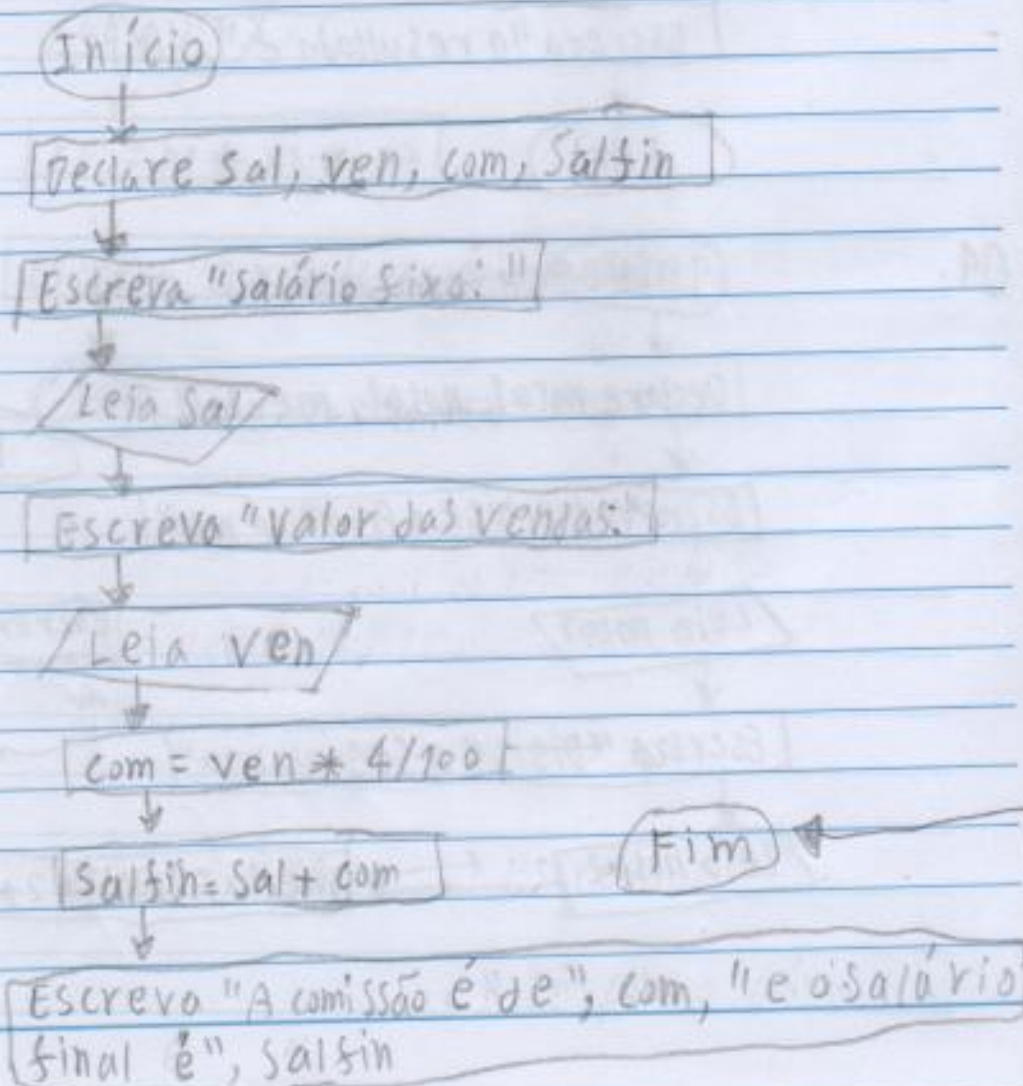 Início
Declare Sal, ven, com, Salfin
Escreva "Salário fixo: "
Leia Sal
Escreva "Valor das vendas:"
Leia ven
com = ven * 4/100
Salfin = Sal + com
Fim
Escreva "A comissão é de", com, "e o salário
final é", Salfin